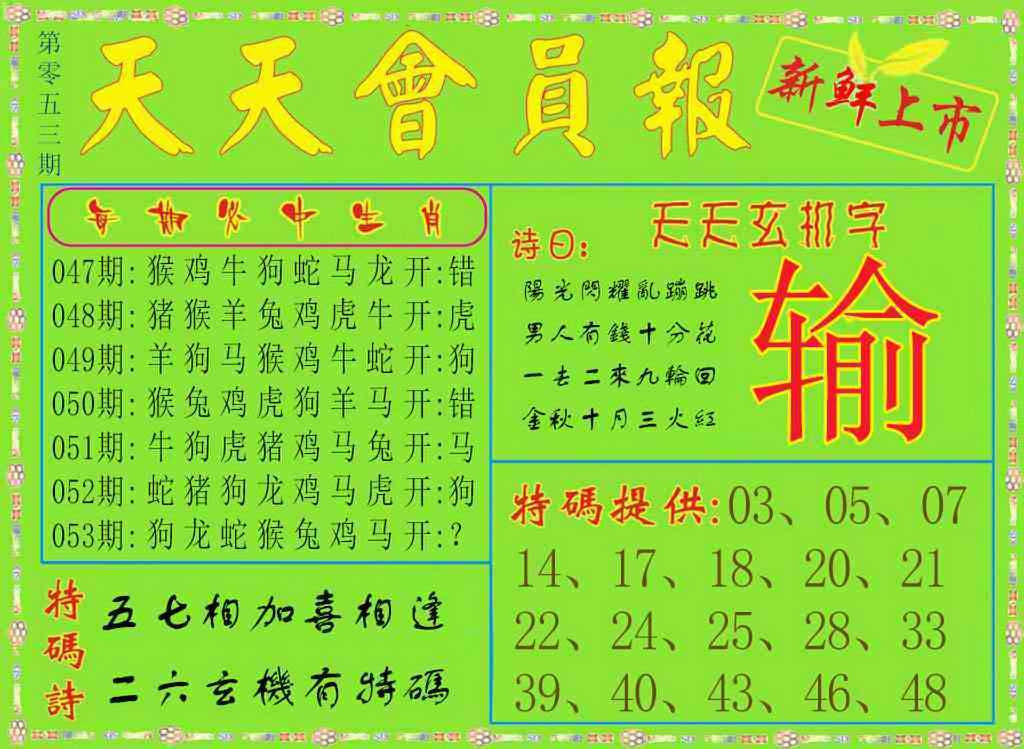 第零五三期
天天會員報
新鮮上市
每期必中生肖
047期:猴鸡牛狗蛇马龙开:错
048期:猪猴羊兔鸡虎牛开:虎
049期:羊狗马猴鸡牛蛇开:狗
050期:猴兔鸡虎狗羊马开:错
051期:牛狗虎猪鸡马兔开:马
052期:蛇猪狗龙鸡马虎开:狗
053期:狗龙蛇猴兔鸡马开:?
天天玄机字
诗曰:
陽光閃耀亂蹦跳
男人有錢十分花
一去二來九輪回
金秋十月三火紅
输
特碼提供:03、05、07
14、17、18、20、21
22、24、25、28、33
39、40、43、46、48
特碼詩
五七相加喜相逢
二六玄機有特碼